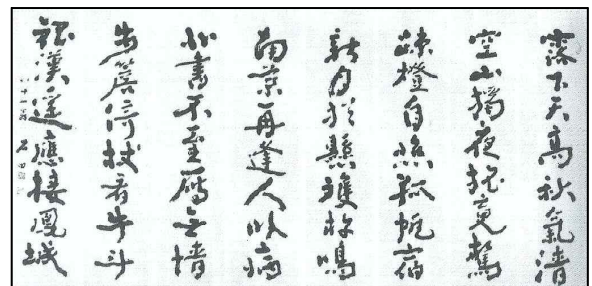 露下天高秋氣清
空山獨夜旅魂驚
疎燈自照孤帆宿
新月猶懸雙杵鳴
南菊再逢人臥病
北書不至雁無情
步簷倚杖看牛斗
銀漢遙應接鳳城